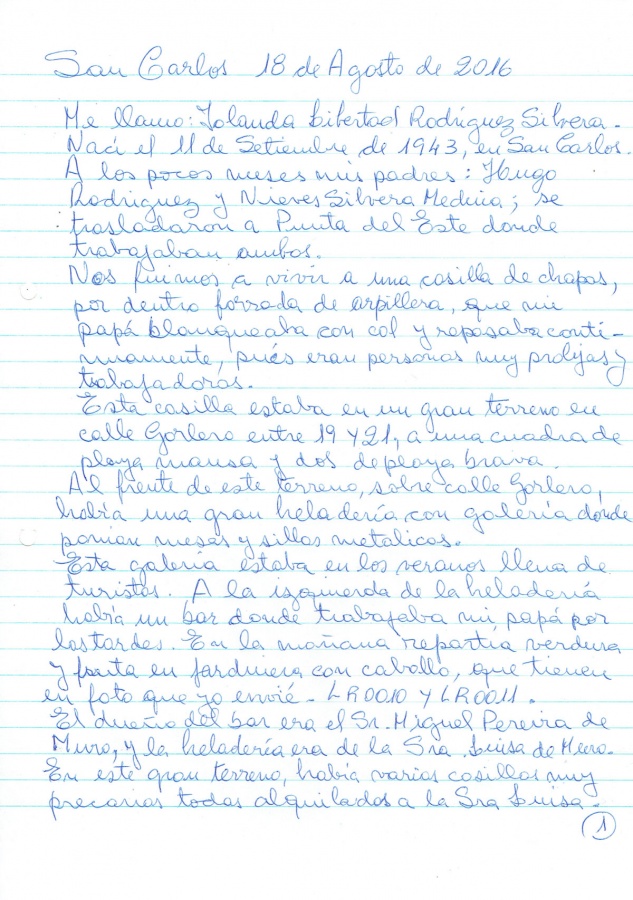 San Carlos 18 de Agosto de 2016
Me llamo: Iolanda Libertad Rodríguez Silvera.
Nací el 11 de Setiembre de 1943, en San Carlos.
A los pocos meses mis padres: Hugo
Rodriguez y Nieves Silvera Medina; se
trasladaron a Punta del Este donde
trabajaban ambos.
Nos fuimos a vivir a una casilla de chapas,
por dentro forrada de arpillera, que mi
papá blanqueaba con cal y repasaba conti-
nuamente, pués eran personas muy prolijas y
trabajadoras.
Esta casilla estaba en un gran terreno en
calle Gorlero entre 19 y 21, a una cuadra de
playa mansa y dos de playa brava.
Al frente de este terreno, sobre calle Gorlero,
había una gran heladería con galería donde
ponían mesas y sillas metalicas.
Esta galería estaba en los veranos llena de
turistas. A la izquierda de la heladería
había un bar donde trabajaba mi papá por
las tardes. En la mañana repartía verdura
y fruta en jardinera con caballo, que tienen
en foto que yo envié - LR0010 Y LR0011.
El dueño del bar era el Sr. Miguel Pereira de
Muro, y la heladería era de la Sra Luisa de Muro.
En este gran terreno, había varias casillas muy
precarias todas alquiladas a la Sra Luisa.
1